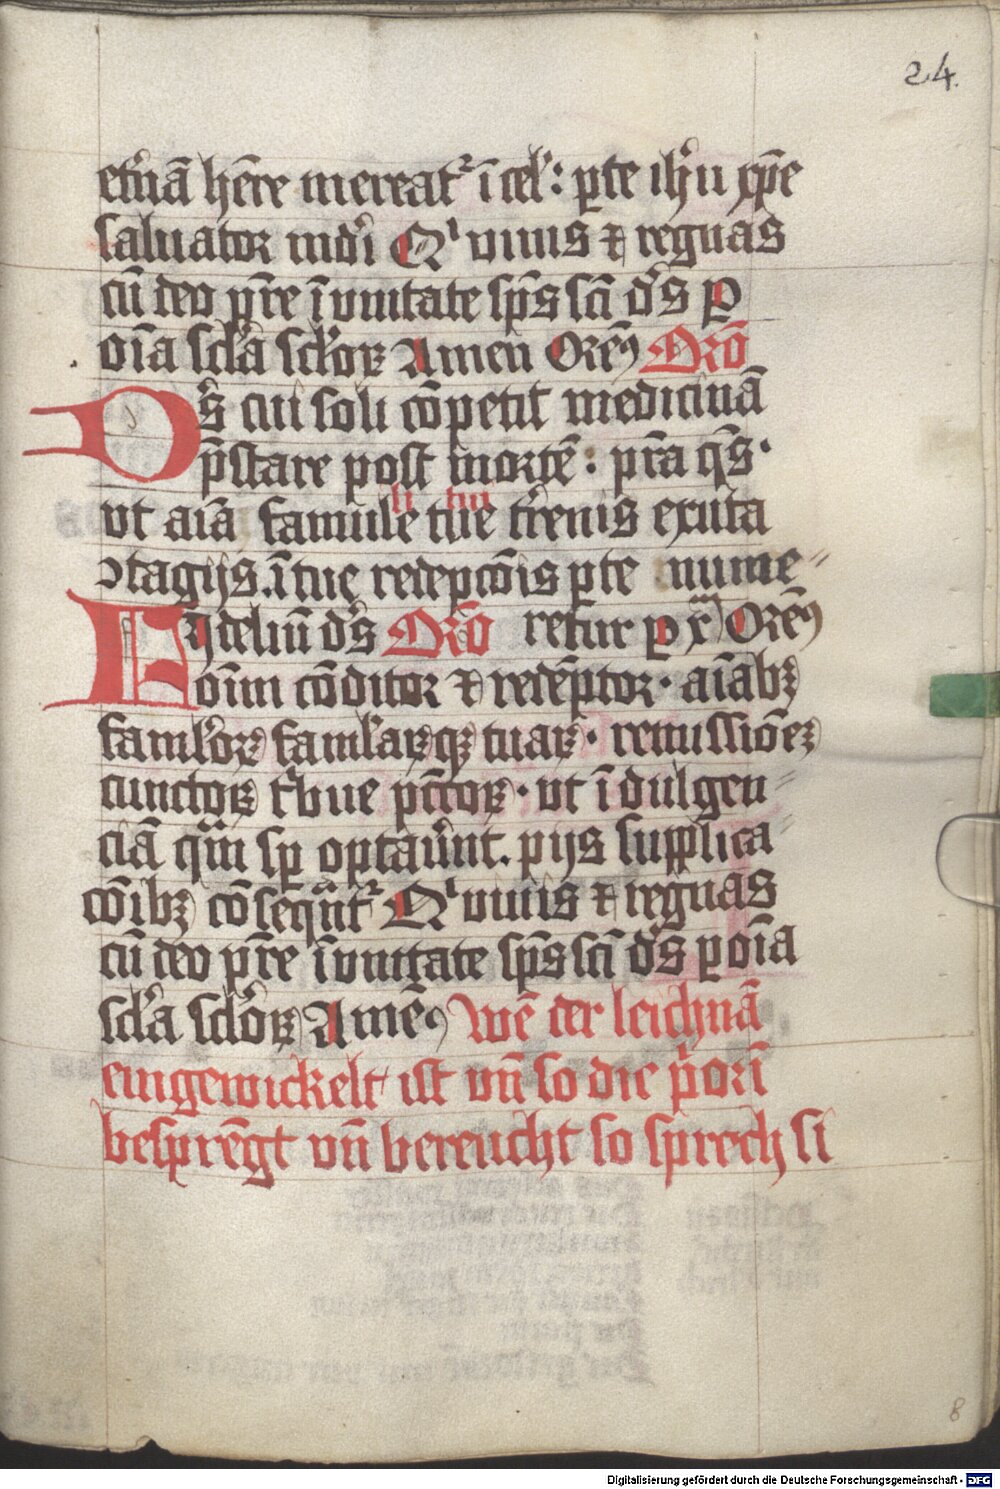 24.
et'nā hēre mereat᷑ ī cel': p̱te ih'u xp̄e
saluator mdi Qⁱ viuis ⁊ regnas
cū deo pr̄e ī vnitate sp̄s sc̄i d's ꝑ
oīa scl'a scl'oꝝ Amen Orem̄ Orō
Ds cui soli cōpetit medicinā
p̄stare post mortē : pr̄a q̄s·
vt aīa famule tue t'renis exuta
li tui
ꝯtagijs. ī tue redēpcōis p̱te nume⸗
Fidelium d's Orō retur ꝑ xm̄ Orem̄
oīm cōditor ⁊ redēptor· aīabꝫ
faml'oꝝ faml'aꝝqꝫ tuaꝝ· remissiōeꝫ
cunctoꝝ t'bue pcc̄oꝝ· vt ī dulgen⸗
ciā quā sp̱ optau'nt. pijs supplica⸗
cōibꝫ cōsequāt᷑ Qⁱ viuis ⁊ regnas
cū deo pr̄e ī vnitate sp̄s sc̄i d's ꝑ oīa
scl'a scl'oꝝ Amē Wē der leichnā
eingewickelt ist vn̄ so die p'orī
besprēgt vn̄ bereucht so sprech si
8
Digitalisierung gefördert durch die Deutsche Forschungsgemeinschaft - DFG